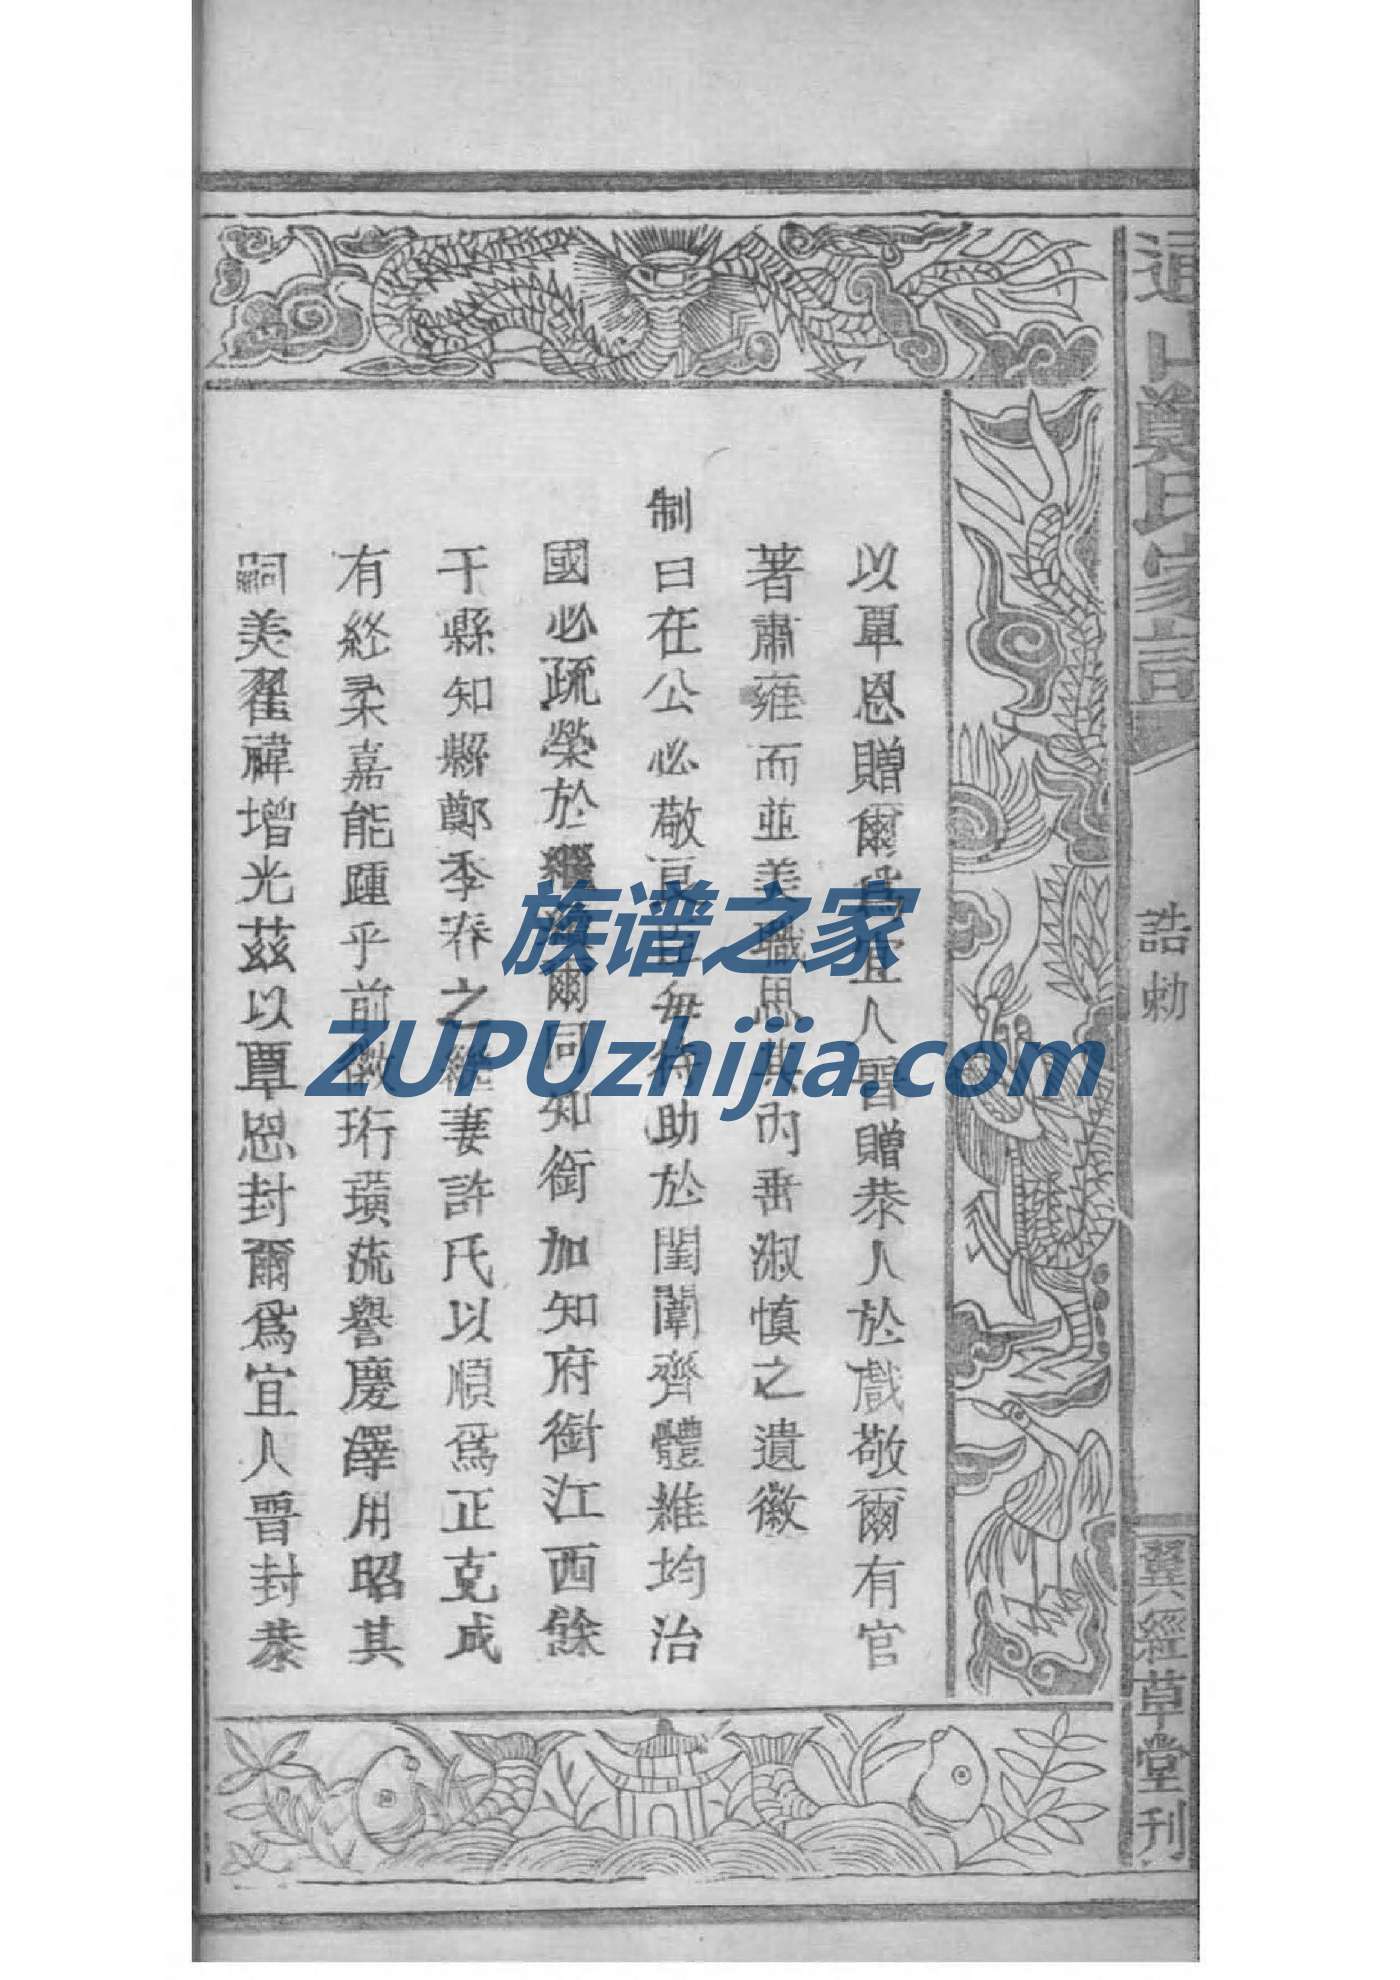 通山鄭氏家譜
誥勅
翼經草堂刊
以覃恩贈爾爲宜人晋贈恭人於戲敬爾有官
著肅雍而並美職思其內垂淑慎之遺徽
制曰在公必敬良臣每待助於閨闈齊體維均治
國必疏榮於繼爾同知銜加知府銜江西餘
干縣知縣鄭季春之繼妻許氏以順爲正克成
有終柔嘉能踵乎前徽珩璜流譽慶澤用昭其
嗣美翟褘增光茲以覃恩封爾爲宜人晋封恭
族谱之家
ZUPUzhijia.com